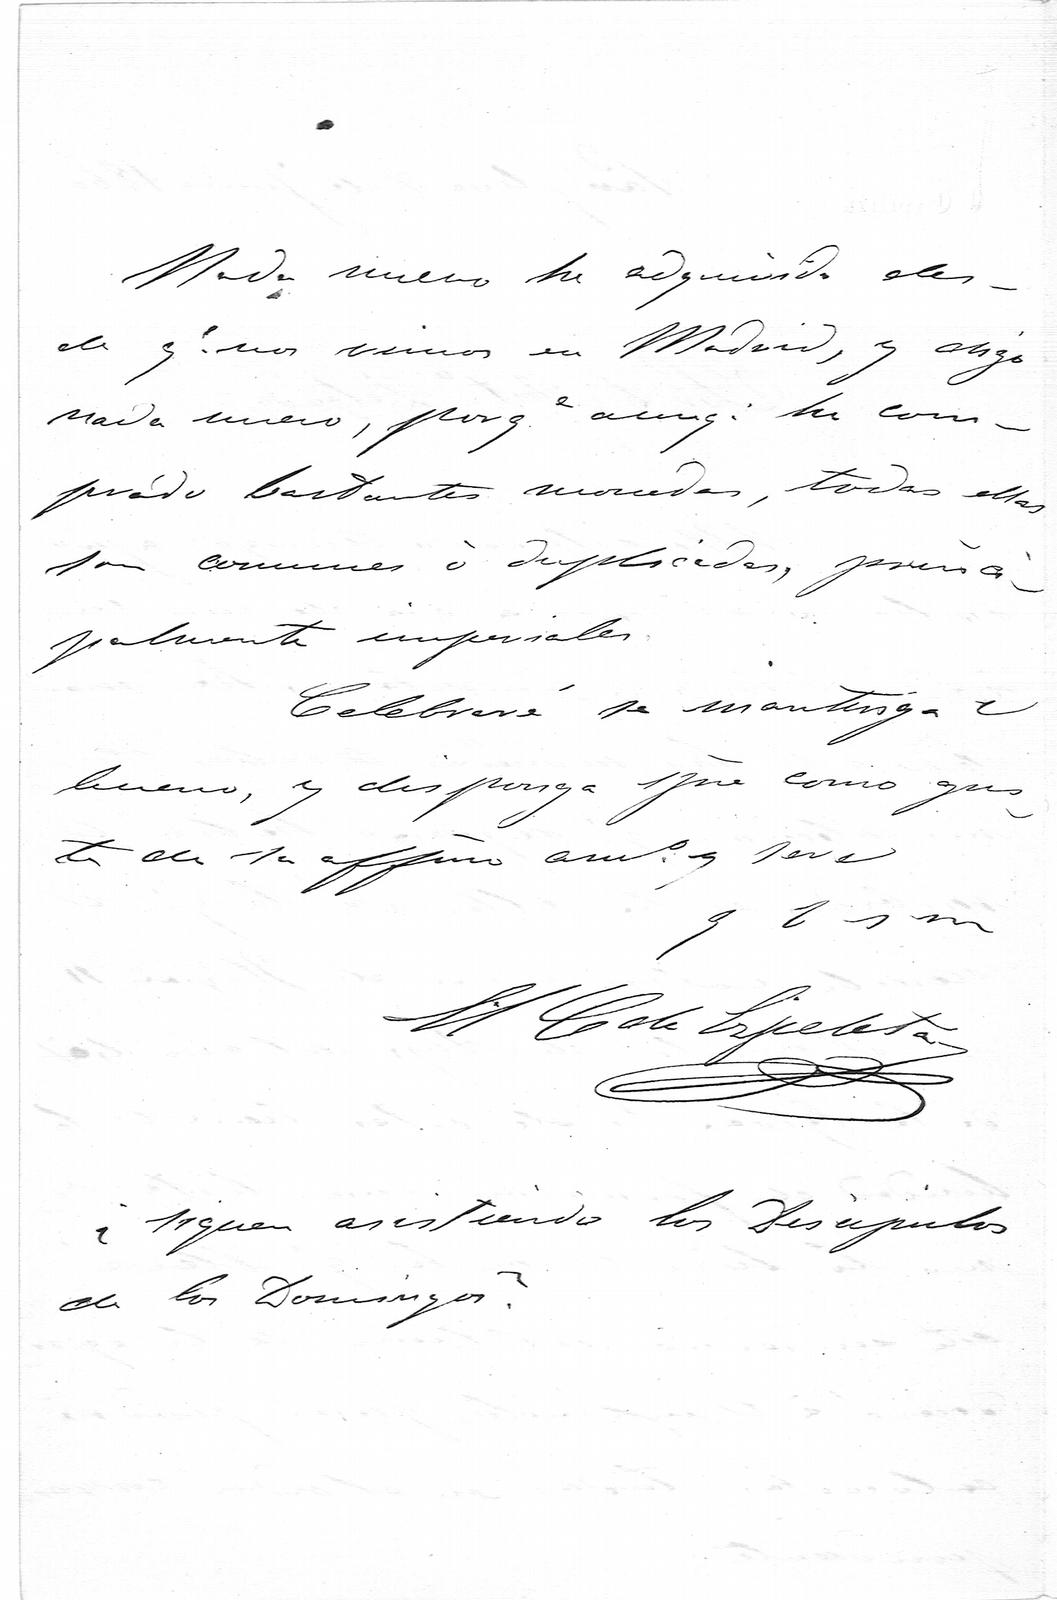 Nada nuevo he adquirido des-
de q.e nos vimos en Madrid, y digo
nada nuevo, porq.e aunq.e he com-
prado bastantes monedas, todas ellas
son comunes ò duplicadas, princi-
palmente imperiales.
Celebraré se mantenga V
bueno, y disponga spre como gus-
te de su affmo am.o y serv
q b s m
M C de Ezpeleta
¿ siguen asistiendo los Discipulos
de los Domingos?